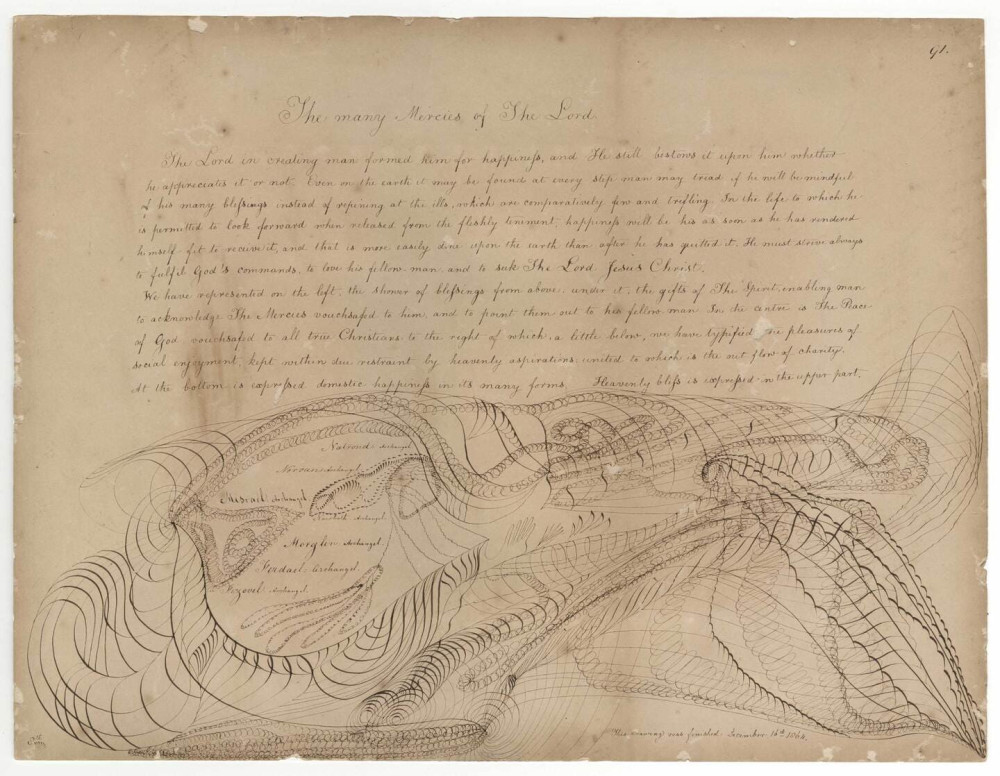 91.
The many Mercies of The Lord
The Lord in creating man formed him for happineſs, and He still bestows it upon him whether
he appreceates it or not. Even on the earth it may be found at every step man may tread if he will be mindful
of his many bleſsings instead of repining at the ills, which are comparatively few and trifling. In the life to which he
is permitted to look forward when released from the fleshly tenement, happineſs will be his as soon as he has rendered
himself fit to receive it, and that is more easily done upon the earth than after he has quitted it. He must strive always
to fulfil God's commands, to love his fellow man and to seek The Lord Jesus Christ.
We have represented on the left, the shower of bleſsings from above, under it, the gifts of The Spirit, enabling man
to acknowledge The Mercies vouchsafed to him, and to point them out to his fellow man. In the centre is The Peace
of God vouchsafed to all true Christians to the right of which, a little below, we have typified the pleasures of
social enjoyment, kept within due restraint by heavenly aspirations, united to which is the out flow of charity.
At the bottom is expreſsed domestic happineſs in its many forms. Heavenly bliſs is expreſsed in the upper part.
Archangel
Archangel
Mesrael Archangel
Archangel
Morglen Archangel
Archangel
Archangel
This drawing was finished December 16th 1862.